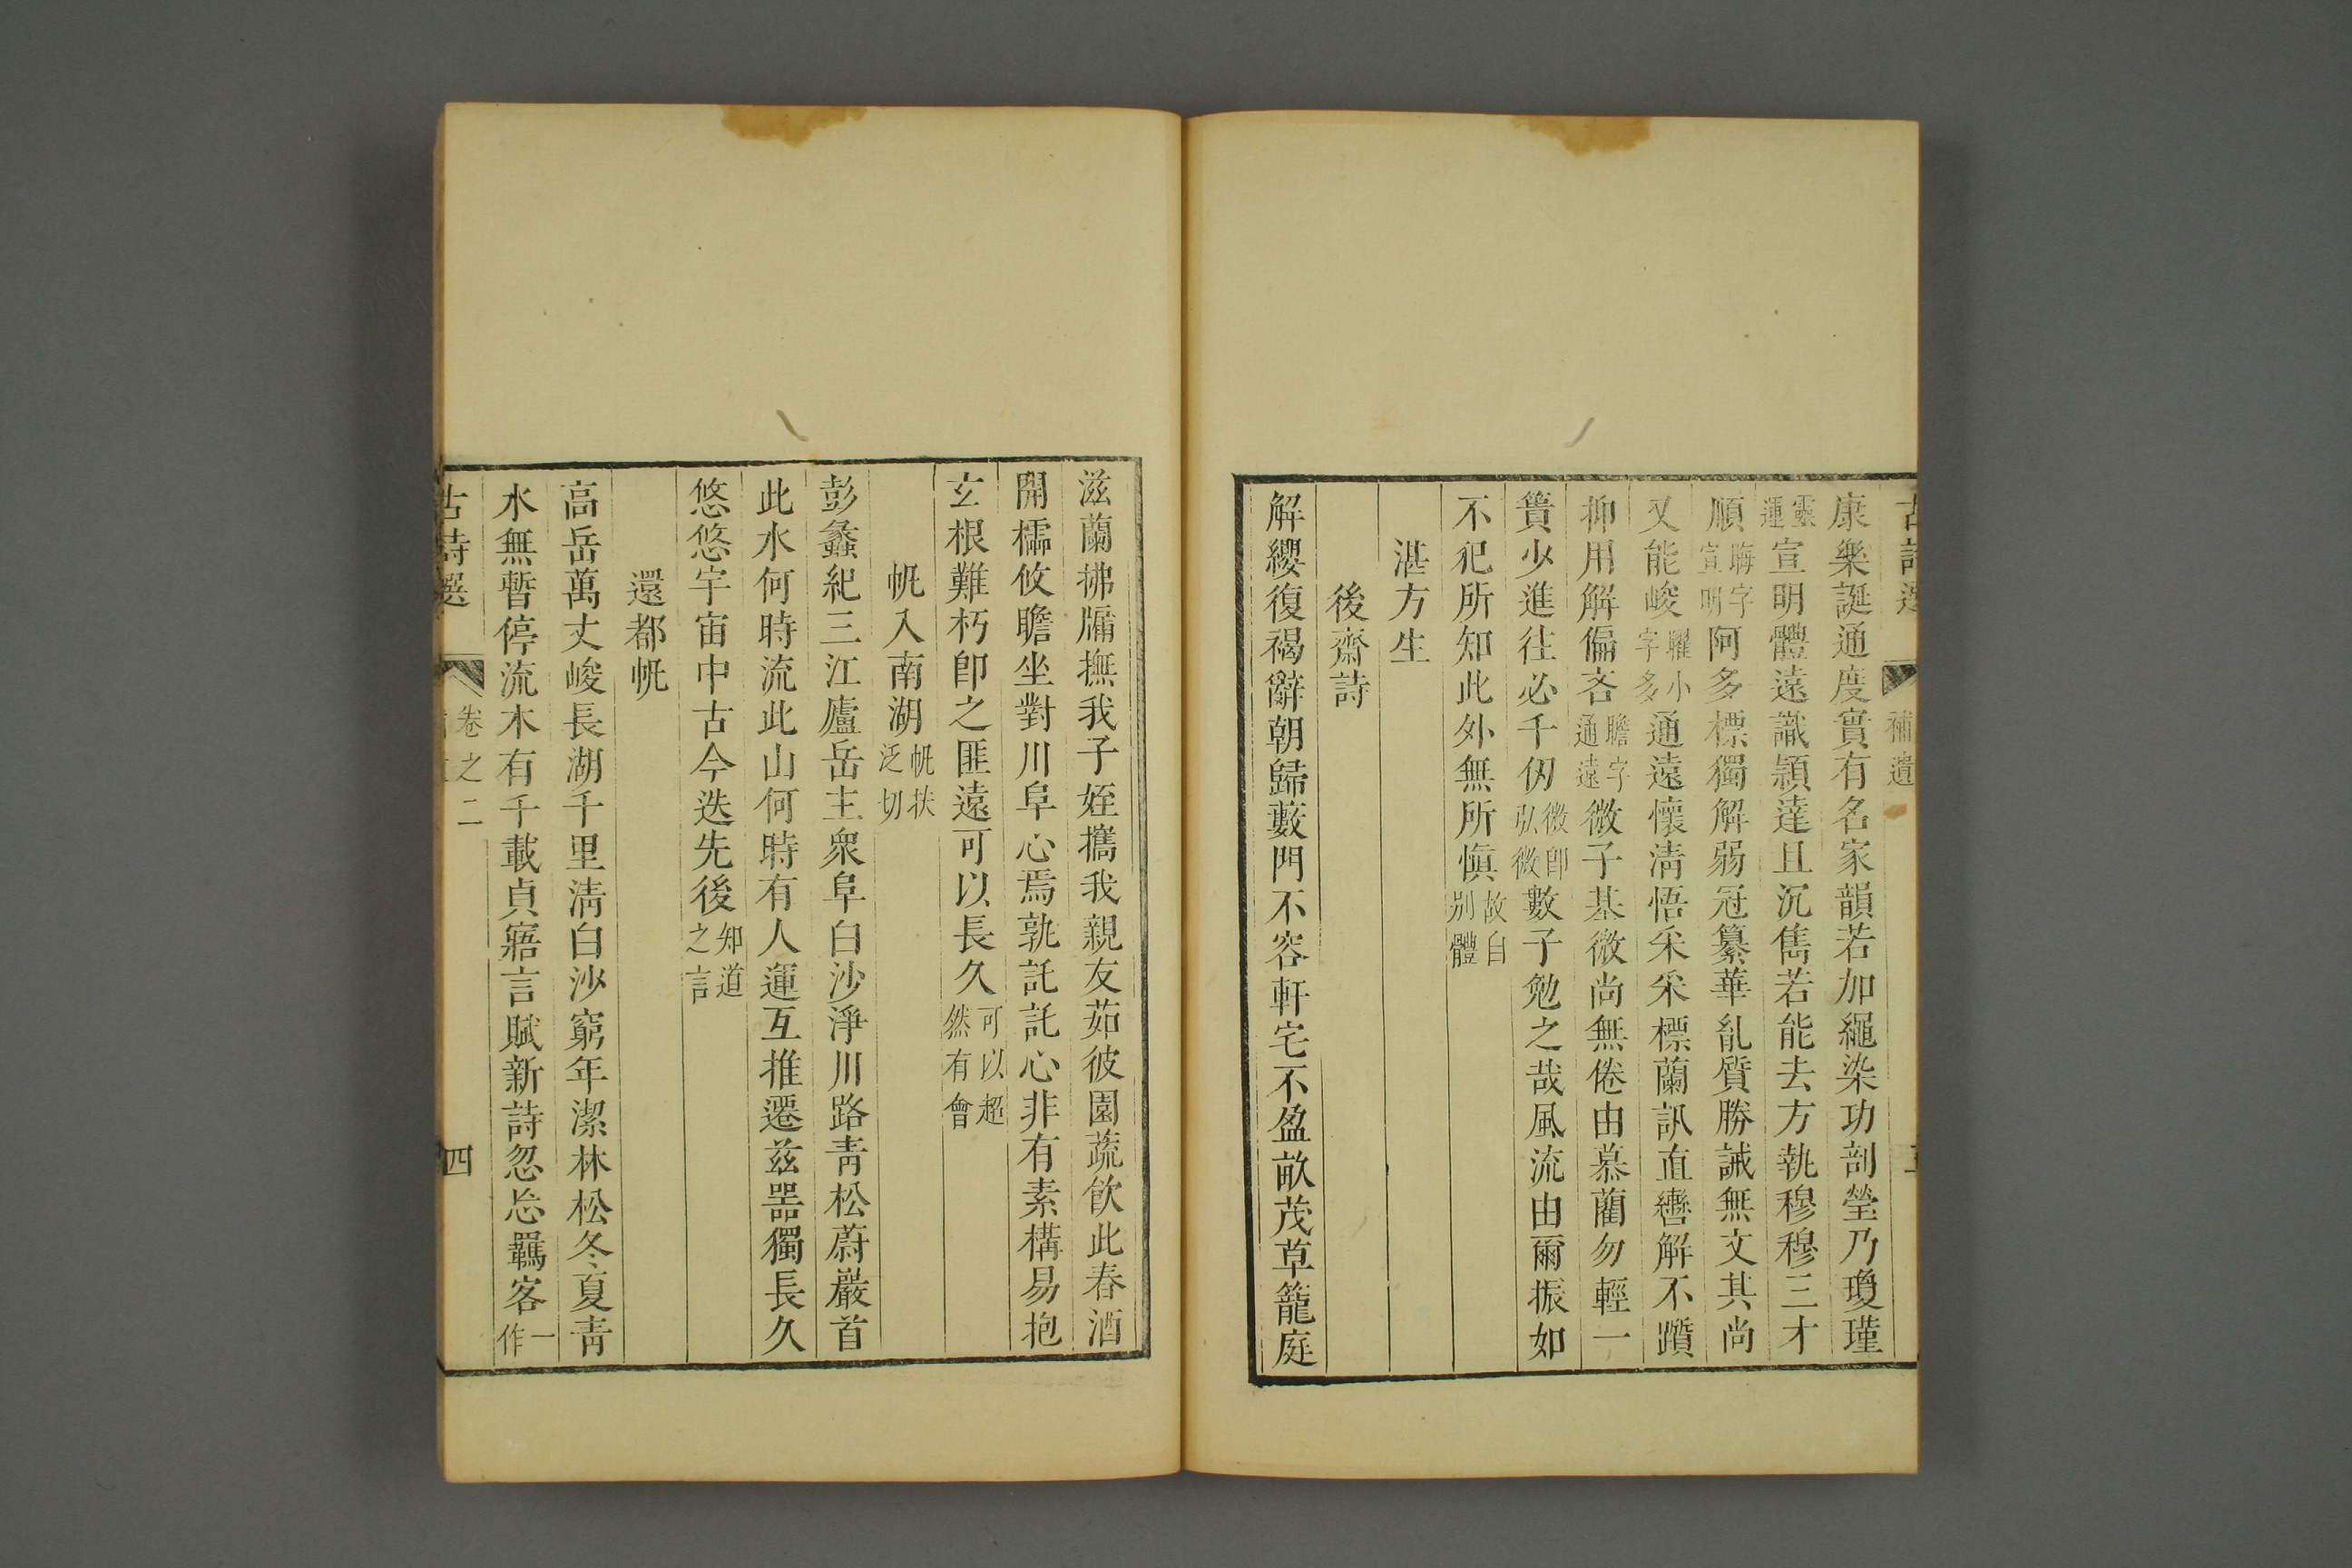 古詩選 補遺
康樂誕通度實有名家韻若加繩染功剖瑩乃瓊瑾
靈運宣明體遠識頴達且沉雋若能去方執穆穆三才
順晦字宣明阿多標獨解弱冠纂華胤質勝誡無文其尚
又能峻曜小字多通遠懷清悟采采標蘭訊直轡解不躓
抑用解偏吝瞻字通遠微子基微尚無倦由慕藺勿輕一
簣少進往必千仞微卽弘微數子勉之哉風流由爾振如
不犯所知此外無所愼故自別體
湛方生
後齋詩
解纓復褐辭朝歸藪門不容軒宅不盈畝茂草籠庭
滋蘭拂牖撫我子姪攜我親友茹彼園蔬飮此春酒
開櫺攸瞻坐對川阜心焉孰託託心非有素構易抱
玄根難朽卽之匪遠可以長久可以超然有會
帆入南湖帆扶泛切
彭蠡紀三江廬岳主衆阜白沙淨川路靑松蔚巖首
此水何時流此山何時有人運互推遷茲器獨長久
悠悠宇宙中古今迭先後知道之言
還都帆
高岳萬丈峻長湖千里淸白沙窮年潔林松冬夏靑
水無暫停流木有千載貞寤言賦新詩忽忘羈客一作
古詩選 卷之二 四